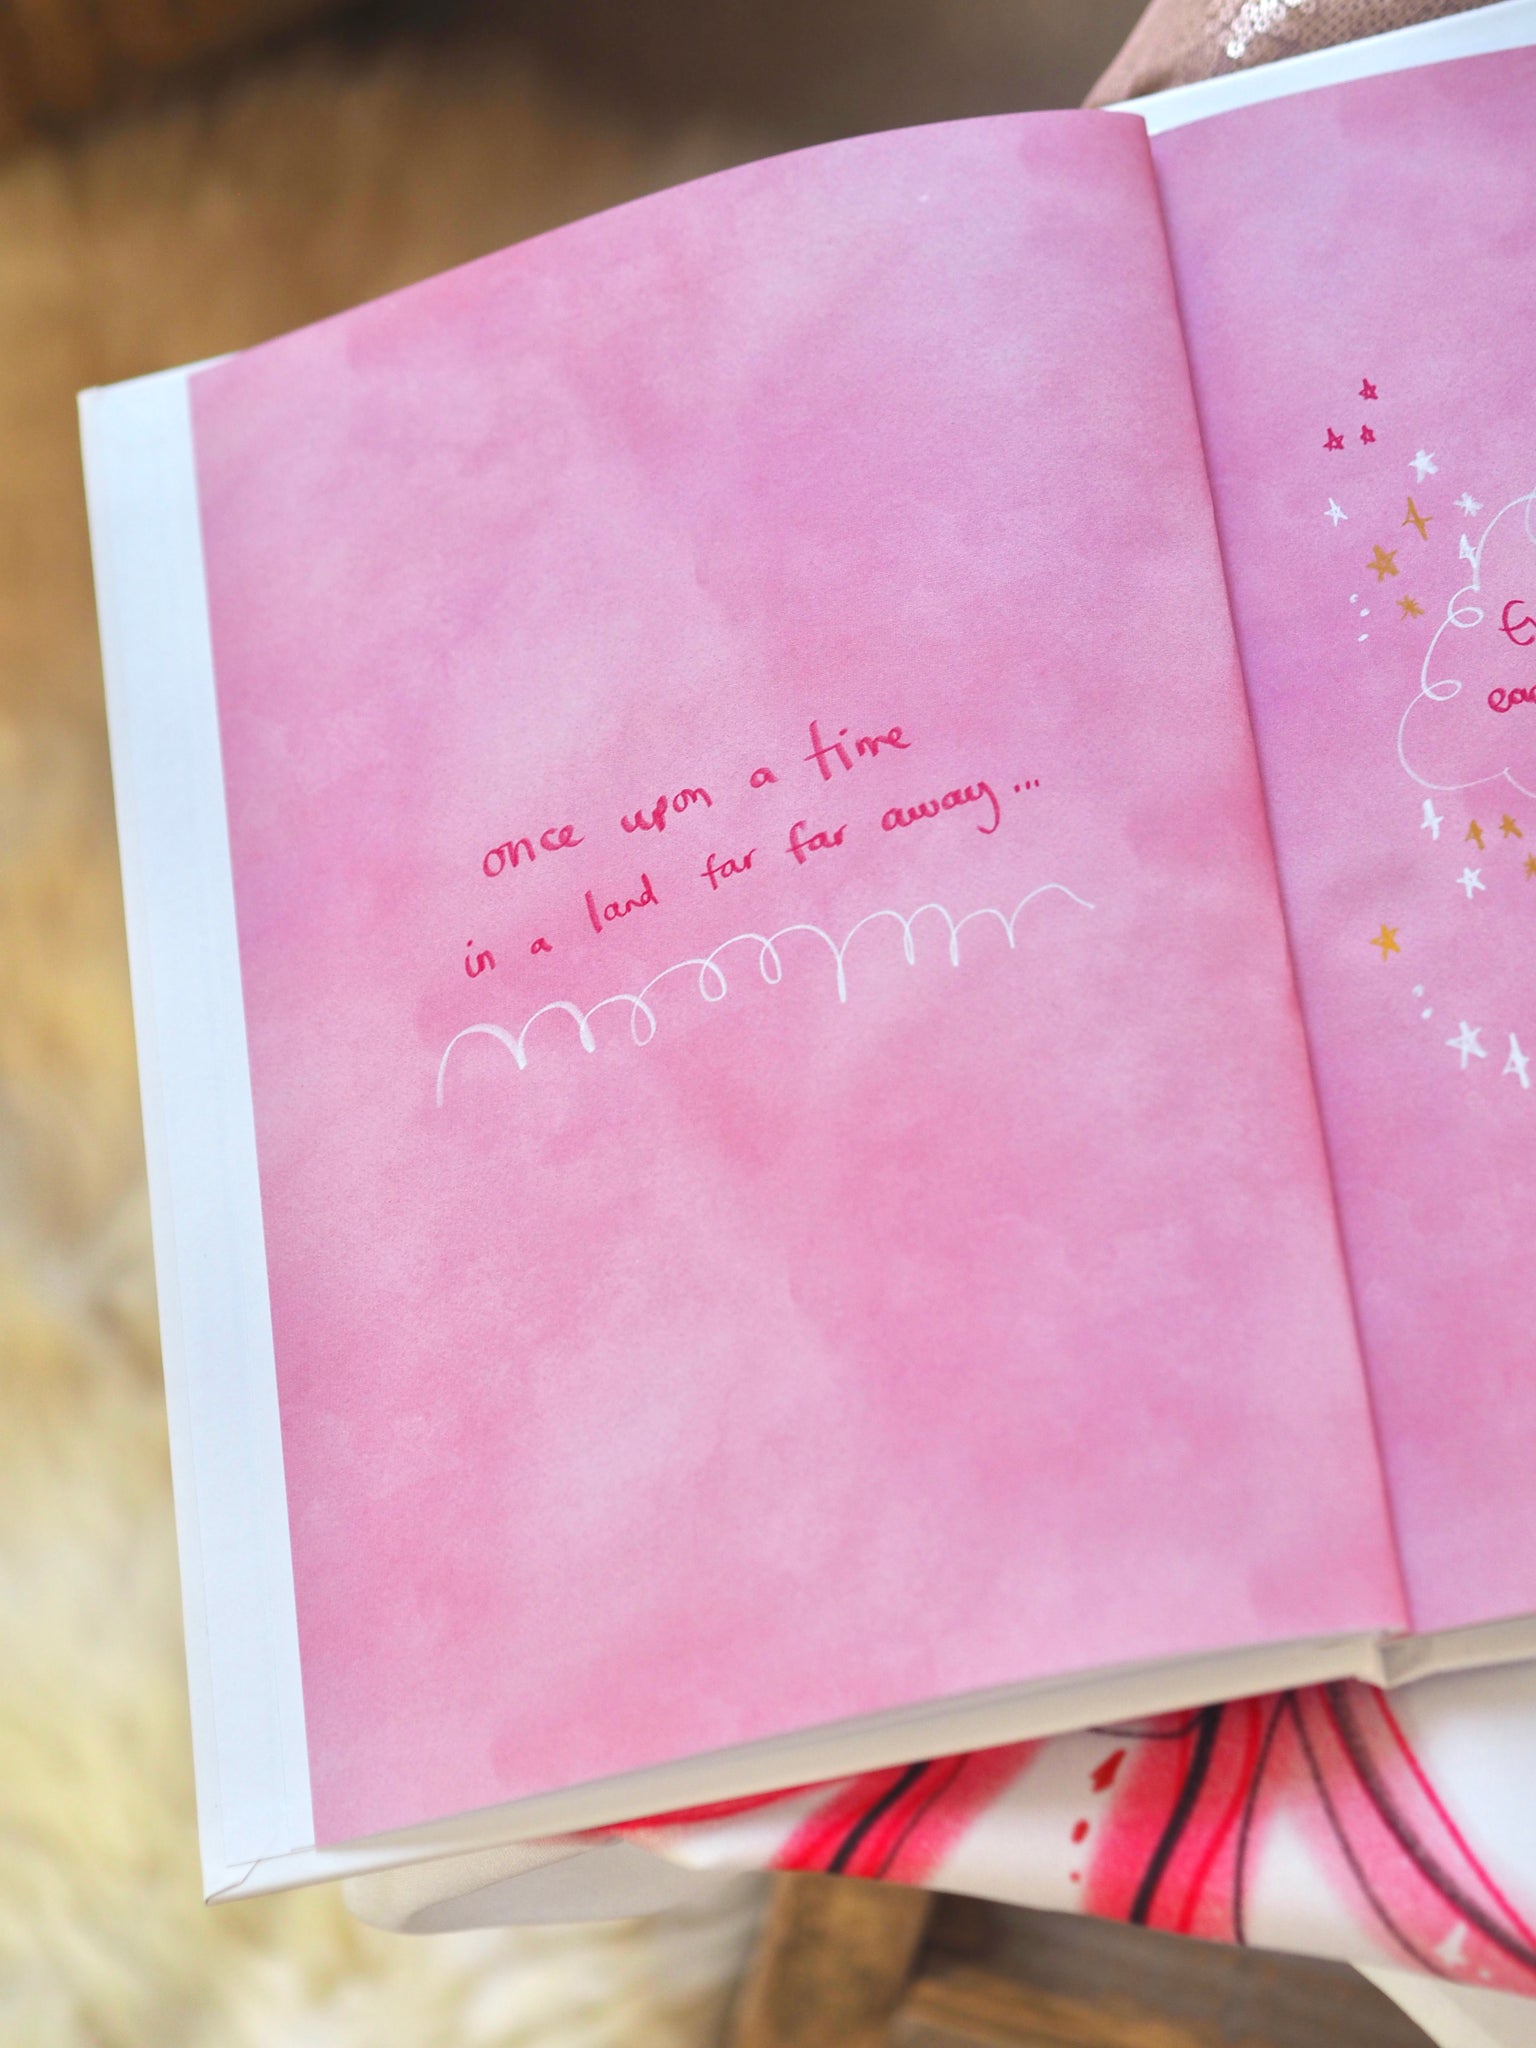 once upon a time
in a land far far away...